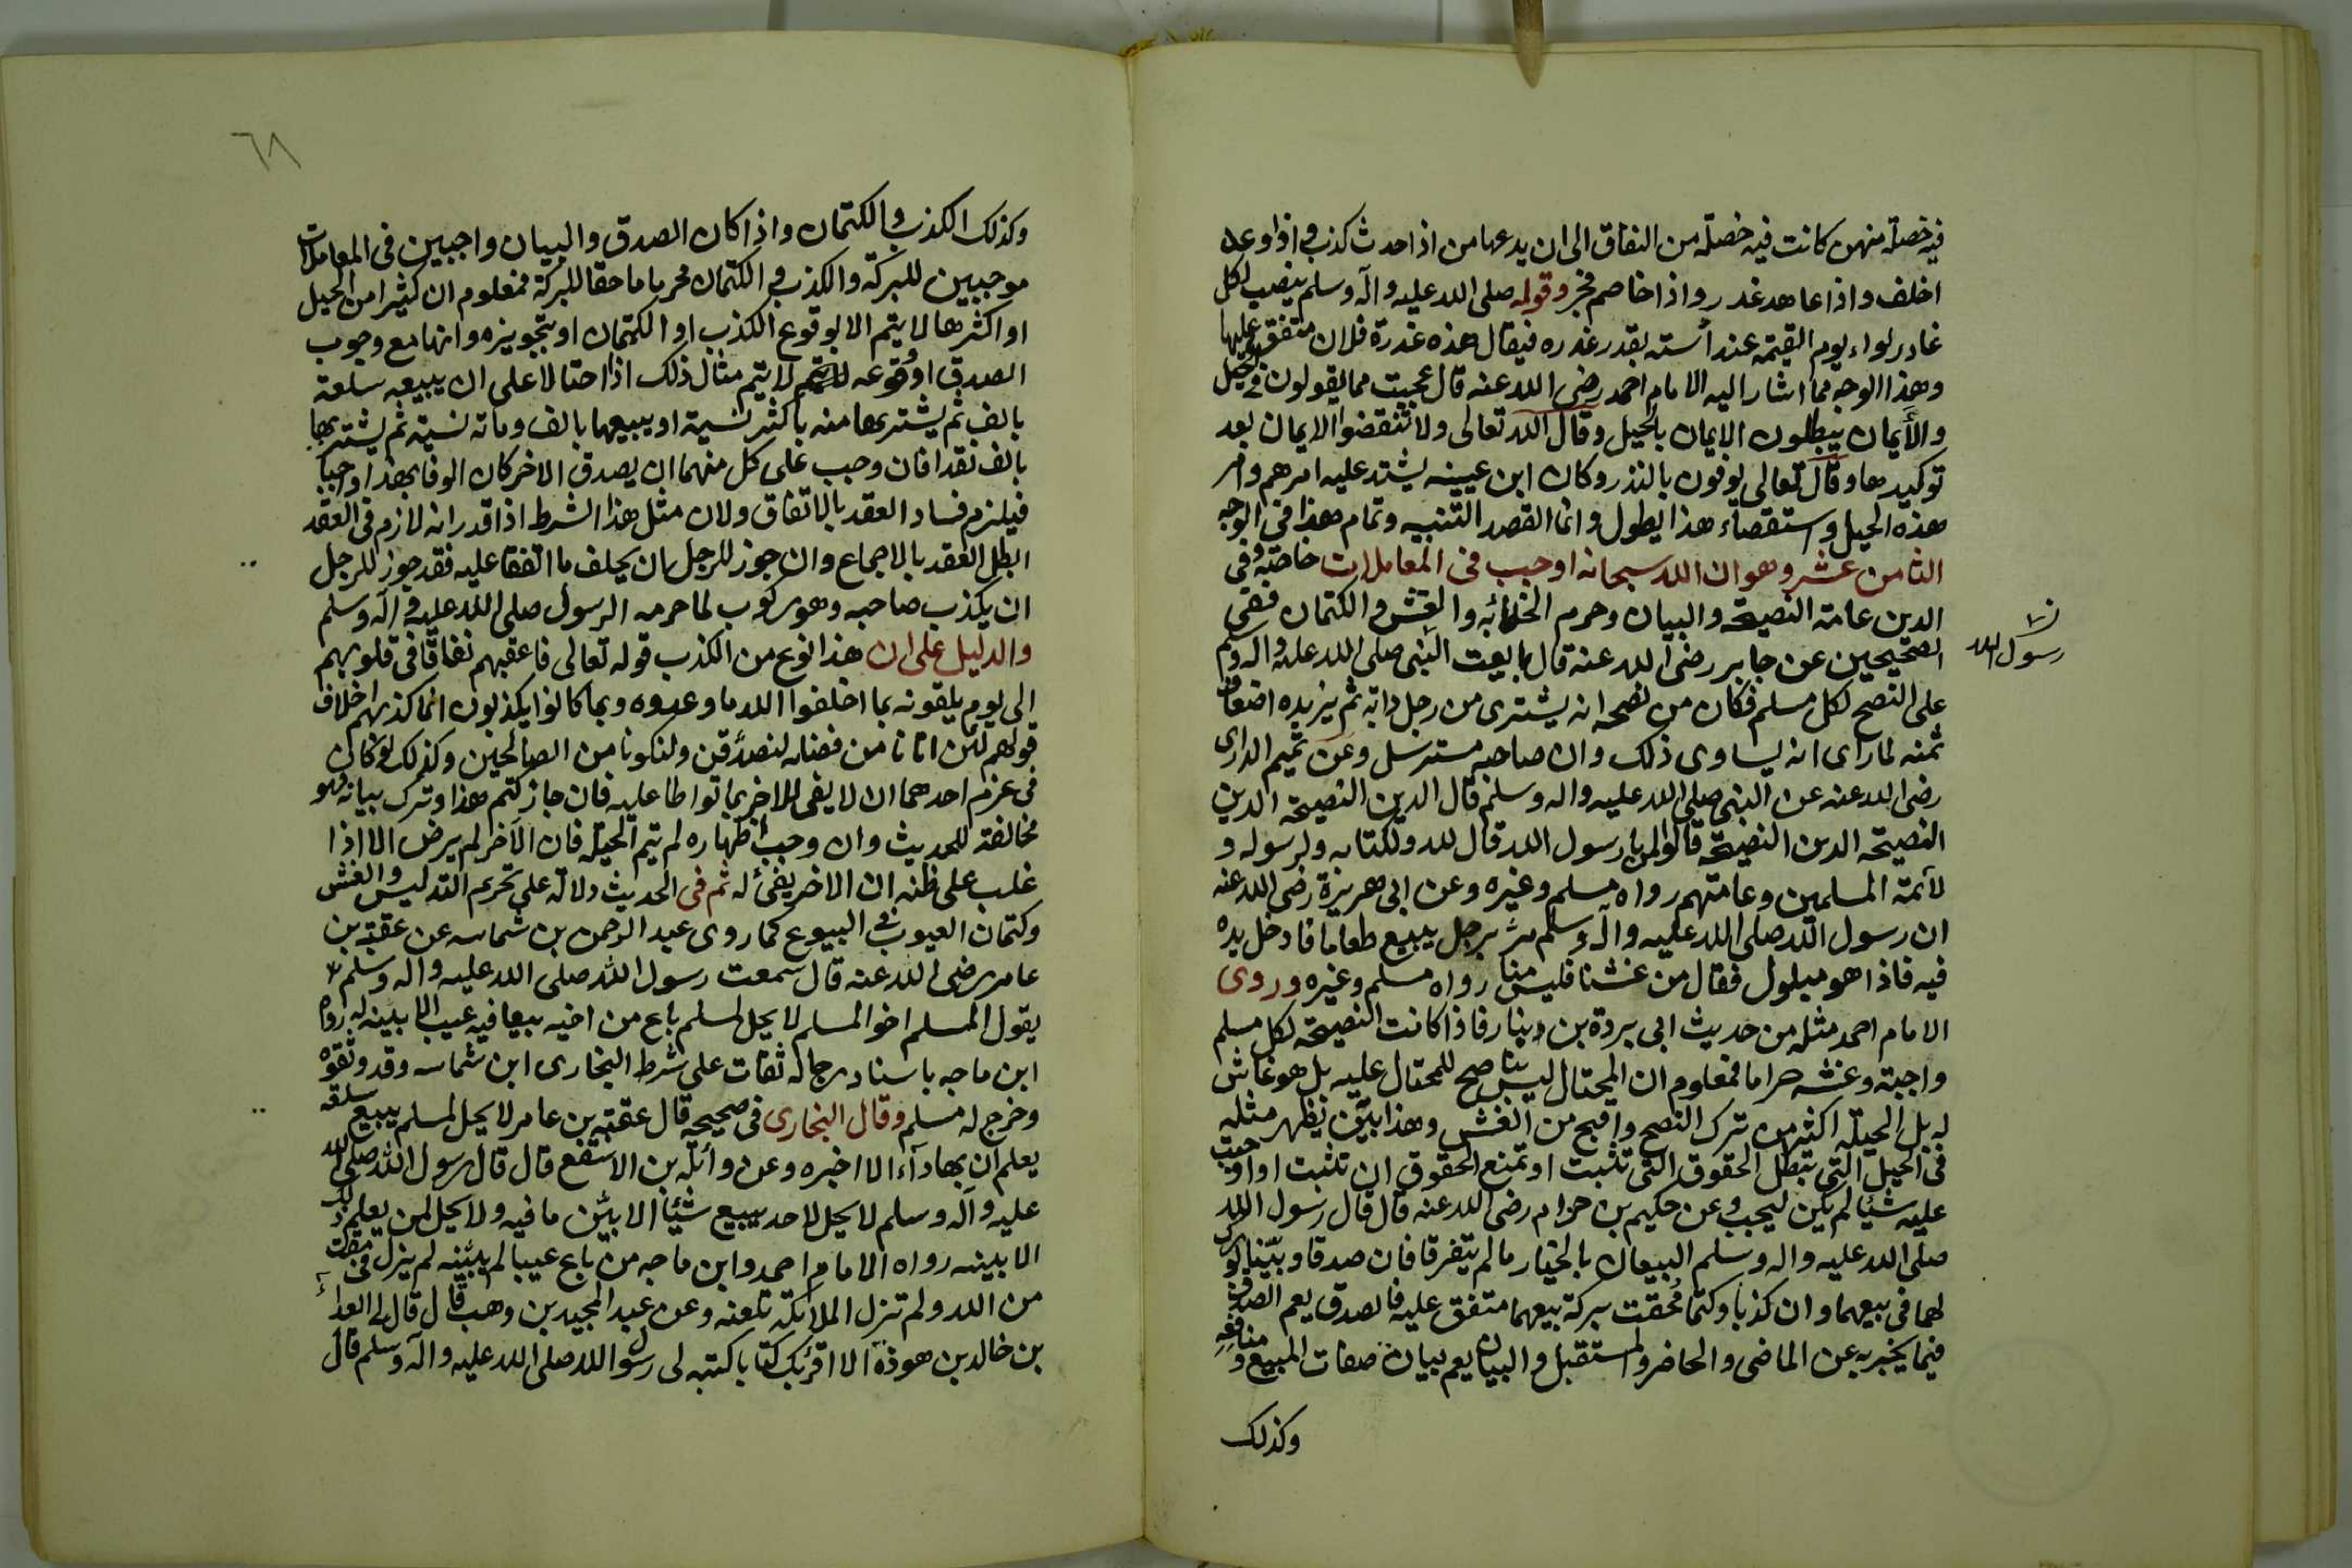 فيه خصلة منهن كانت فيه خصلة من النفاق الى ان يدعها من اذا حدث كذب واذا وعد
اخلف واذا عاهد غدر واذا خاصم فجر وقوله صلى الله عليه وآله وسلم ينصب لكل
غادر لواء يوم القيمة عند أسته بقدر غدره فيقال هذه غدرة فلان متفق عليها
وهذا الوجه مما اشار اليه الامام احمد رضى الله عنه قال عجبت مما يقولون فى الحيل
والأيمان يبطلون الايمان بالحيل وقال الله تعالى ولا تنقضوا الايمان بعد
توكيدها وقال تعالى يوفون بالنذر وكان ابن عيينه يشتد عليه امرهم وامر
هذه الحيل واستقصاء هذا يطول وانما القصد التنبيه وتمام هذا فى الوجه
الثامن عشر وهو ان الله سبحانه اوجب فى المعاملات خاصة وفى
الدين عامة النصيحة والبيان وحرم الخلابه والغش والكتمان ففى
الصحيحين عن جابر رضى الله عنه قال بايعت النبى صلى الله عليه واله وسلم
ن
رسول الله
على النصح لكل مسلم فكان من نصحه انه يشترى من رجل دابة ثم يزيده اضعاف
ثمنه لما راى انه يساوى ذلك وان صاحبه مسترسل وعن تميم الدارى
رضى الله عنه عن النبى صلى الله عليه واله وسلم قال الدين النصيحة الدين
النصيحة الدين النصيحة قالوا لمن يا رسول الله قال لله ولكتابه ولرسوله و
لأئمة المسلمين وعامتهم رواه مسلم وغيره وعن ابى هريرة رضى الله عنه
ان رسول الله صلى الله عليه واله وسلم مر برجل يبيع طعاما فادخل يده
فيه فاذا هو مبلول فقال من غشنا فليس منا رواه مسلم وغيره وروى
الامام احمد مثله من حديث ابى بردة بن دينار فاذا كانت النصيحة لكل مسلم
واجبة وغشه حراما فمعلوم ان المحتال ليس بناصح للمحتال عليه بل هو غاش
له بل الحيلة اكثر من ترك النصح واقبح من الغش وهذا بين يظهر مثله
فى الحيل التى تبطل الحقوق التى تثبت او تمنع الحقوق ان تثبت او اوجبت
عليه شيئا لم يكن ليجب وعن حكيم بن حزام رضى الله عنه قال قال رسول الله
صلى الله عليه واله وسلم البيعان بالخيار ما لم يتفرقا فان صدقا وبينا بورك
لهما فى بيعهما وان كذبا وكتما محقت بركة بيعهما متفق عليه فالصدق يعم الصدق
فيما يخبر به عن الماضى والحاضر والمستقبل والبيان يعم بيان صفات المبيع ومنافعه
وكذلك
٦٨
وكذلك الكذب والكتمان واذا كان الصدق والبيان واجبين فى المعاملات
موجبين للبركة والكذب والكتمان محرما ماحقا للبركة فمعلوم ان كثيرا من الحيل
او اكثرها لا يتم الا بوقوع الكذب او الكتمان او بتجويزه وانها مع وجوب
الصدق او وقوعه لا يتم مثال ذلك اذا احتالا على ان يبيعه سلعة
بالف ثم يشتريها منه باكثر نسية او يبيعها بالف ومائة نسية ثم يشتريها
بالف نقدا فان وجب على كل منهما ان يصدق الاخر كان الوفا بهذا واجبا
فيلزم فساد العقد بالاتفاق ولان مثل هذا الشرط اذا قدر انه لازم فى العقد
ابطل العقد بالاجماع وان جوز للرجل ان يخلف ما اتفقا عليه فقد جوز للرجل
ان يكذب صاحبه وهو ركوب لما حرمه الرسول صلى الله عليه وآله وسلم
والدليل على ان هذا نوع من الكذب قوله تعالى فاعقبهم نفاقا فى قلوبهم
الى يوم يلقونه بما اخلفوا الله ما وعدوه وبما كانوا يكذبون انما كذبهم اخلاف
قولهم لئن اتانا من فضله لنصدقن ولنكونا من الصالحين وكذلك لو كان
فى عزم احدهما ان لا يفى للاخر بما تواطا عليه فان جاز كتم هذا وترك بيانه فهو
مخالفة للحديث وان وجب اظهاره لم يتم الحيلة فان الآخر لم يرض الا اذا
غلب على ظنه ان الاخر يفى له ثم فى الحديث دلالة على تحريم التدليس والغش
وكتمان العيوب فى البيوع كما روى عبد الرحمن بن شماسه عن عقبة بن
عامر رضى الله عنه قال سمعت رسول الله صلى الله عليه واله وسلم
يقول المسلم اخو المسلم لا يحل لمسلم باع من اخيه بيعا فيه عيب الا بينه له رواه
ابن ماجه باسناد رجاله ثقات على شرط البخارى ابن شماسه وقد وثقوه
وخرج له مسلم وقال البخارى فى صحيحه قال عقبة بن عامر لا يحل لمسلم يبيع سلعة
يعلم ان بها داء الا اخبره وعن واثلة بن الاسقع قال قال رسول الله صلى الله
عليه وآله وسلم لا يحل لاحد يبيع شيئا الا بين ما فيه ولا يحل لمن يعلم ذلك
الا بينه رواه الامام احمد وابن ماجه من باع عيبا لم يبينه لم يزل فى مقت
من الله ولم تزل الملائكة تلعنه وعن عبد المجيد بن وهب قال قال لى العداء
بن خالد بن هوذة الا اقرئك كتابا كتبه لى رسول الله صلى الله عليه وآله وسلم قال